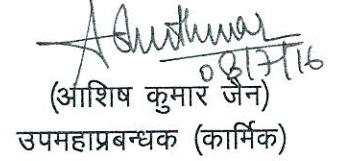 08/7/16
(आशिष कुमार जैन)
उपमहाप्रबन्धक (कार्मिक)